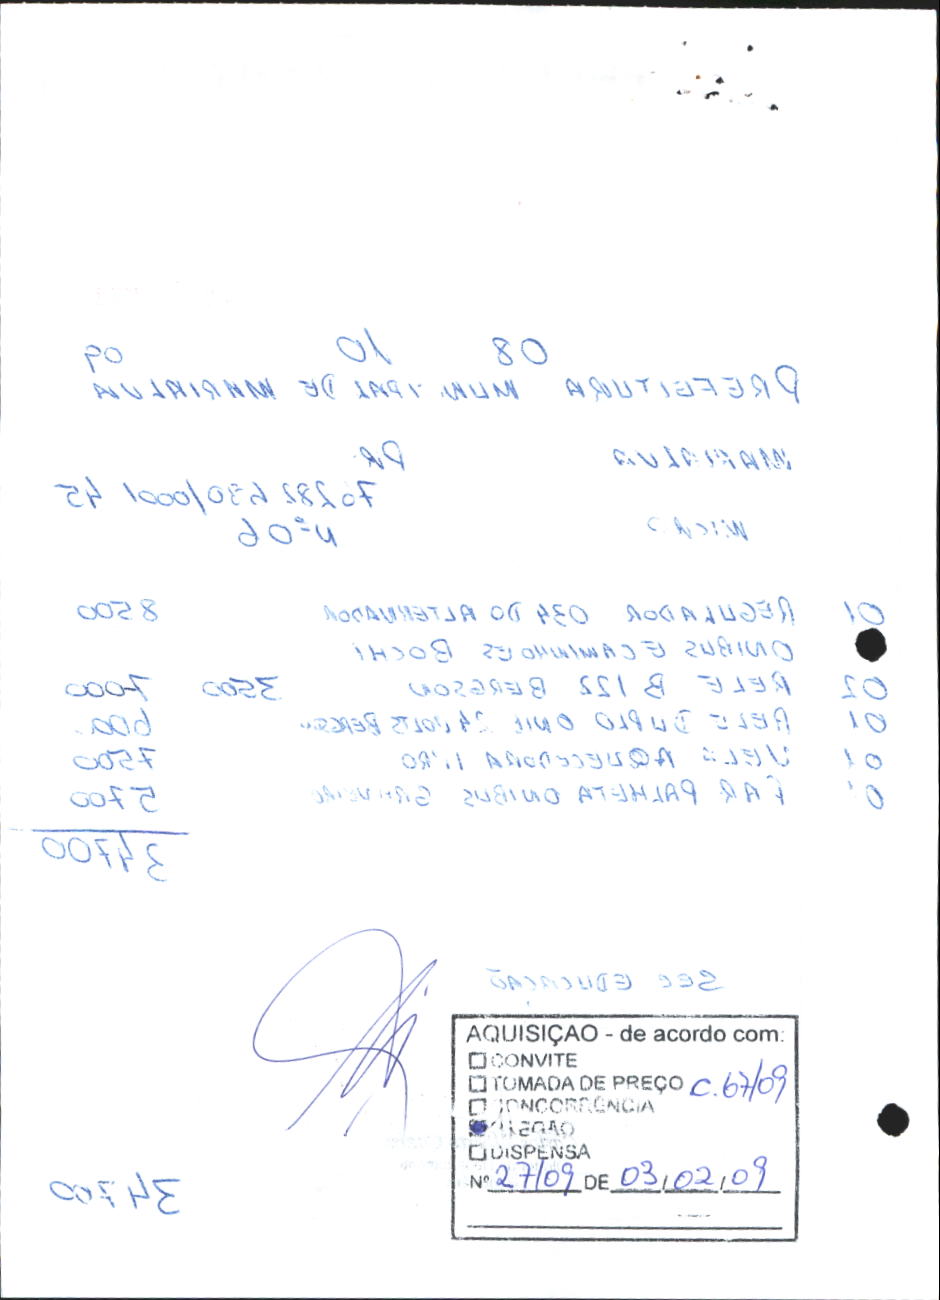 08 10 09
PREFEITURA MUNICIPAL DE MARIALVA
MARIALVA PR
45
Nº 06
01 REGULADOR 034 DO ALTERNADOR 8500
ONIBUS E CAMINHOES BOCHI
02 RELE B 122 BERGSON 3500 7000
01 RELE DUPLO 24 VOLTS 
01 AQUECEDORA 7500
PAR PALHETA ONIBUS 5700
34700
SEC EDUCAÇÃO
AQUISIÇAO - de acordo com:
CONVITE
TOMADA DE PREÇO C.67/09
CONCORRÊNCIA
DISPENSA
Nº 27/09 DE 03/02/09
34700